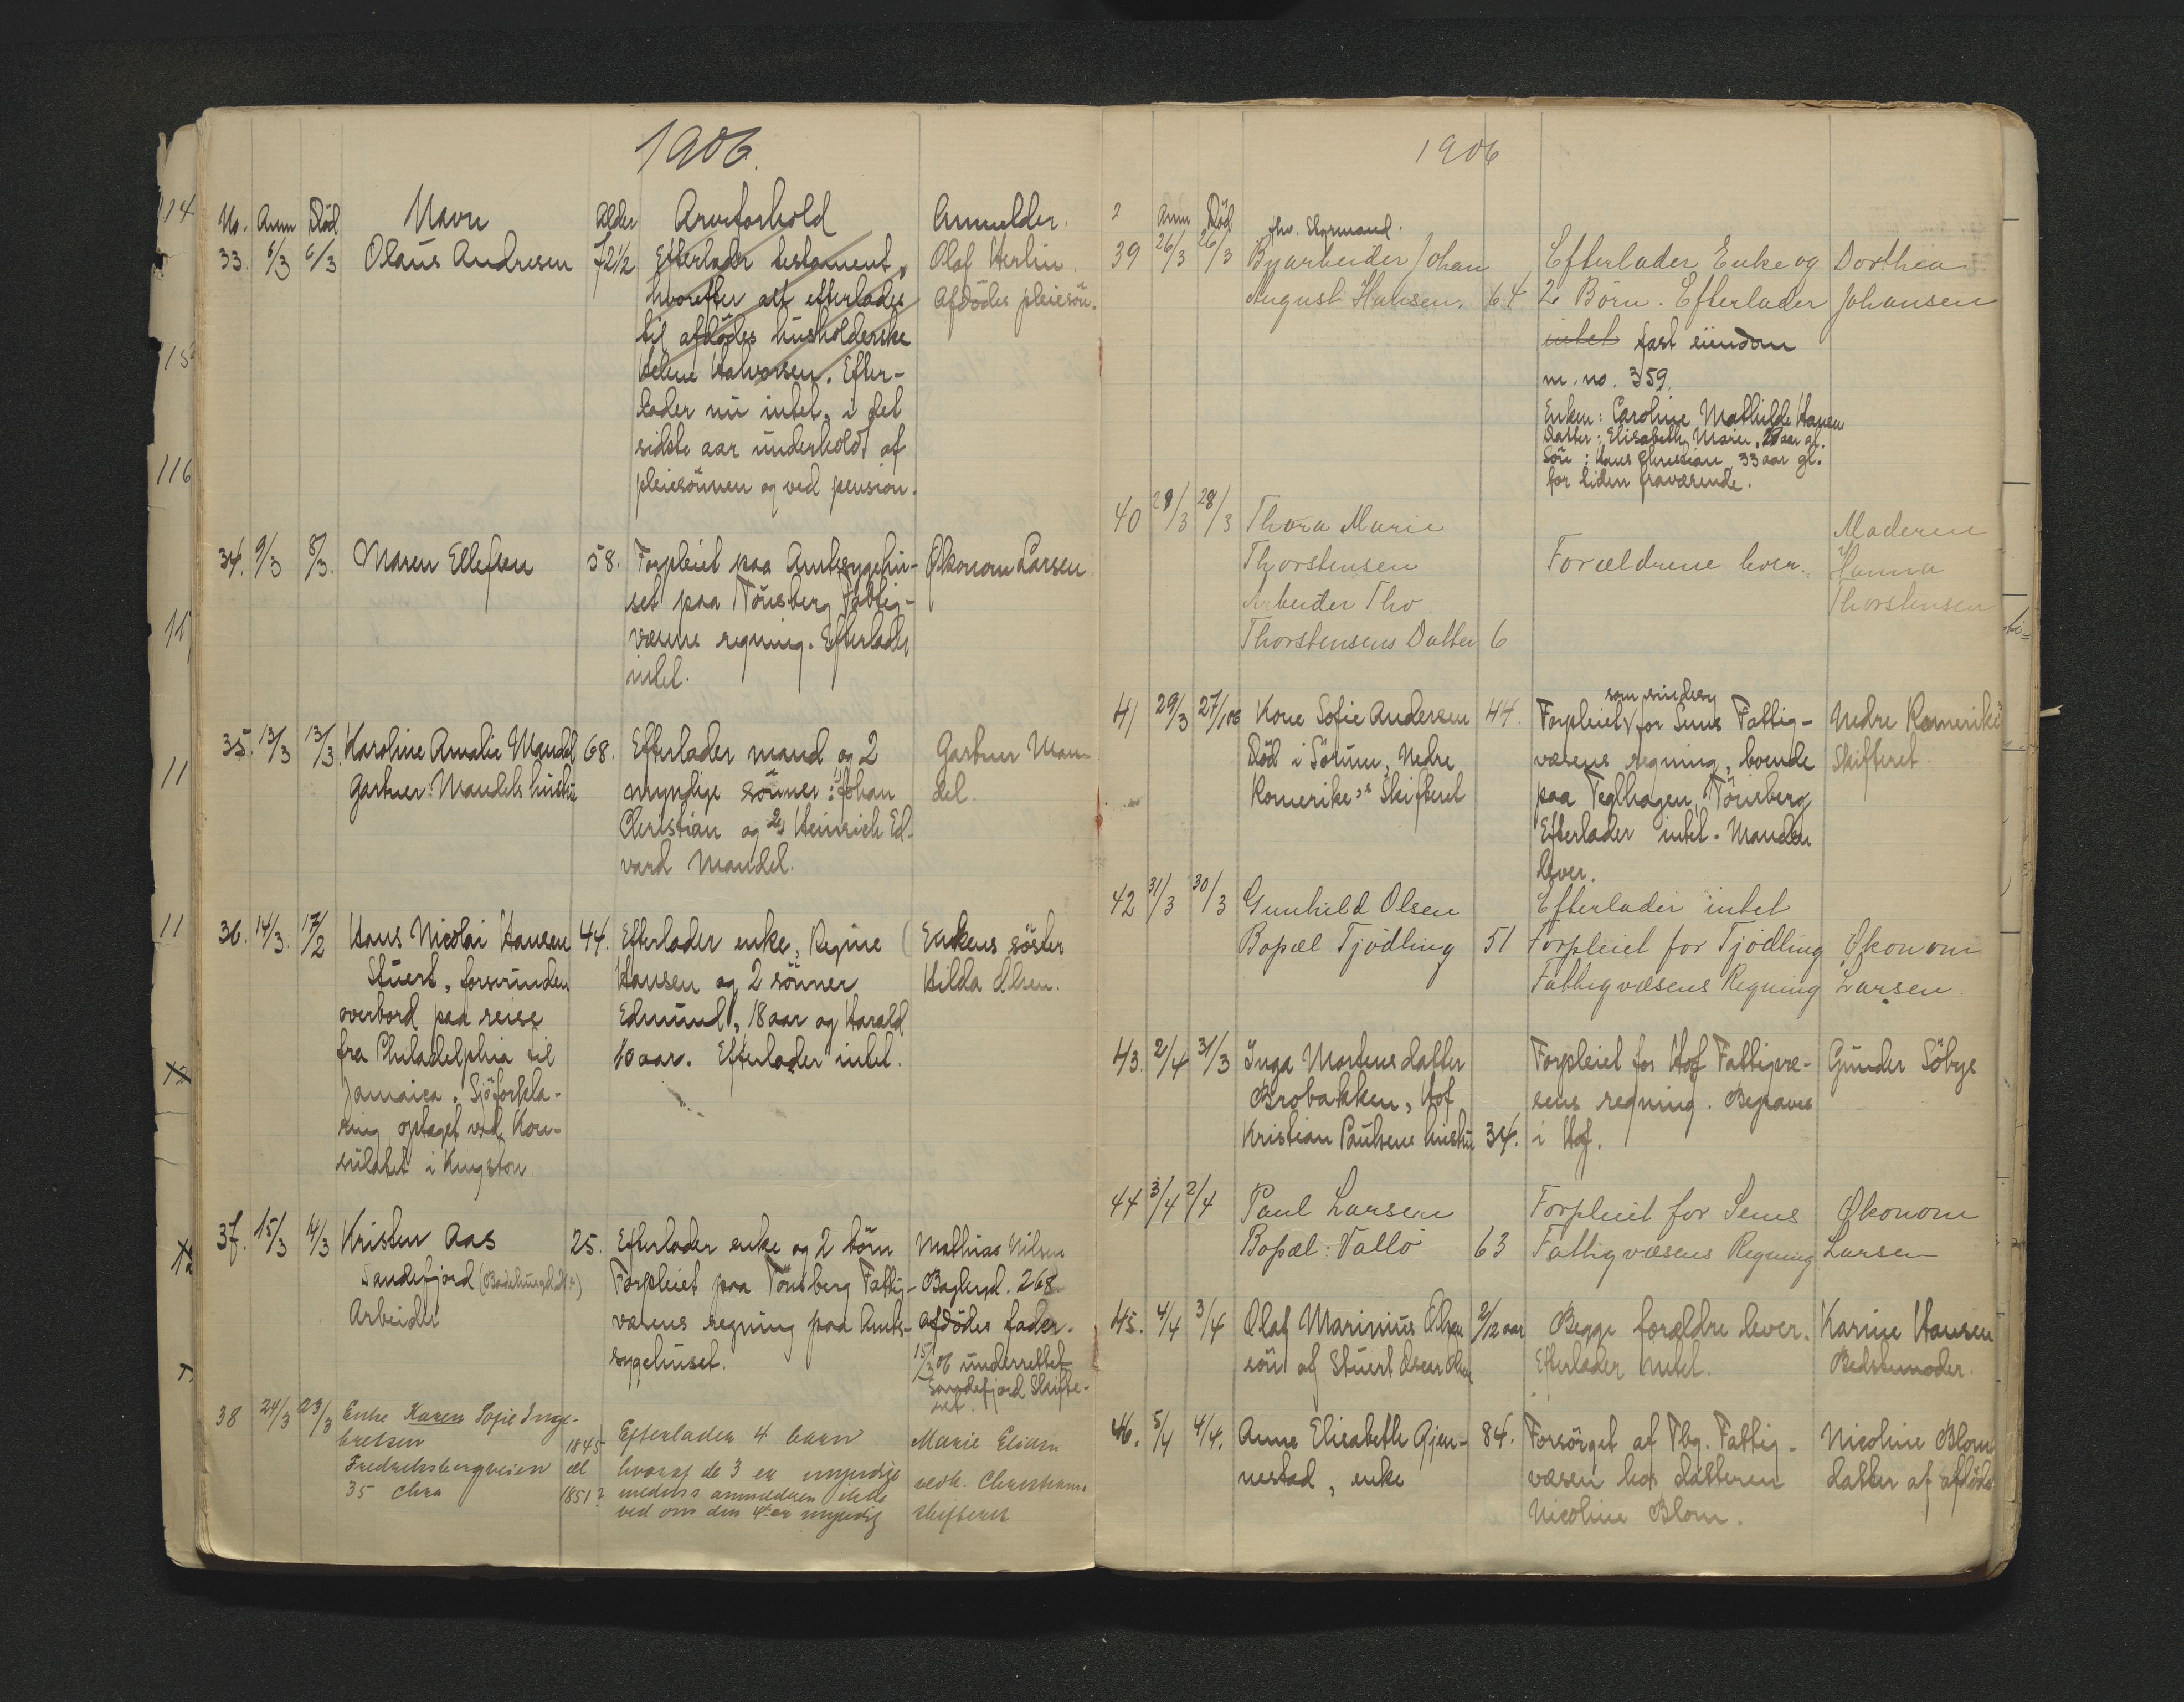 1906.
No. Anm Död Navn Alder Arveforhold Anmelder.
33. 6/3 6/3 Olaus Andresen 72½ Efterlader testament, Olaf Herlin.
hvorefter alt efterlades Afdödes pleiesön.
til afdödes husholderske
Helene Halvorsen. Efter-
lader nu intet, i det
sidste aar underholdt af
pleiesönnen og ved pension.
34. 9/3 8/3. Maren Ellefsen 58. Forpleiet paa Amtssygehu- Økonom Larsen.
set paa Tönsberg Fattig-
væsens regning. Efterlader
intet.
35. 13/3 13/3. Karoline Amalie Mandel 68. Efterlader mand og 2 Gartner Man-
Gartner Mandels hustru myndige sönner: 1) Johan del.
Christian og 2) Heinrich Ed-
vard Mandel.
36. 14/3. 17/2 Hans Nicolai Hansen 44. Efterlader enke, Regine Enkens söster
Stuert, forsvunden Hansen og 2 sönner Hilda Olsen.
overbord paa reise Edmund, 18 aar og Harald
fra Philadelphia til 10 aar. Efterlader intet.
Jamaica. Sjöforkla-
ring optaget ved Kon-
sulatet i Kingston
37. 15/3 14/3 Kristen Aas 25. Efterlader enke og 2 börn Mathias Nilsen
Sandefjord Forpleiet paa Tönsberg Fattig- Baglergd. 268
Arbeider væsens regning paa Amts- afdödes fader.
sygehuset. 15/3 06 underrettet
Sandefjord Skifte-
ret.
38 24/3 23/3 Enke Karen Sofie Inge-
bretsen 1845 Efterlader 4 barn Marie Eliasen
Fredriksborgveien el hvoraf de 3 er myndige vedk. Christiania
35 Chra 1851? medens anmelderen ikke skifteret
ved om den 4de er myndig
1906
Anm Död fhv. Styrmand.
39 26/3 26/3 Byarbeider Johan Efterlader Enke og Dorthea
August Hansen. 64 2 Börn. Efterlader Johansen
intet fast eiendom
m. no. 359.
Enken: Caroline Mathilde Hansen
Datter: Elisabeth Marie, aar gl.
Sön: Hans Christian 33 aar gl.
for tiden fraværende.
40 29/3 28/3 Thora Marie Moderen
Thorstensen Forældrene lever. Hanna
Arbeider Tho. Thorstensen
Thorstensens Datter 6
41 29/3 27/1 06 Kone Sofie Andersen 44. Forpleiet som sindssyg for Sems Fattig- Nedre Romerike
Död i Sörum, Nedre væsens regning, boende Skifteret
Romerikes Skifteret paa Teglhagen, Tönsberg
Efterlader intet. Manden
lever.
42 31/3 30/3 Gunhild Olsen Efterlader intet
Bopæl Tjödling 51 Forpleiet for Tjödling Økonom
Fattigvæsens Regning Larsen.
43. 2/4 31/3 Inga Mortensdatter Forpleiet for Hof Fattigvæ- Gunder Söbye
Brobakken, Hof sens regning. Begraves
Kristian Paulsens hustru 34. i Hof.
44 3/4 2/4 Paul Larsen Forpleiet for Sems Økonom
Bopæl: Vallö 63 Fattigvæsens Regning Larsen
45. 4/4 3/4 Olaf Marinius Olsen 2/12 aar Begge forældre lever. Karine Hansen
sön af Stuert Oscar Olsen Efterlader intet. Bedstemoder.
46. 5/4 4/4. Anne Elisabeth Gjen- 84. Forsörget af Tbg. Fattig- Nicoline Blom
nestad, enke væsen hos datteren datter af afdöde
Nicoline Blom.